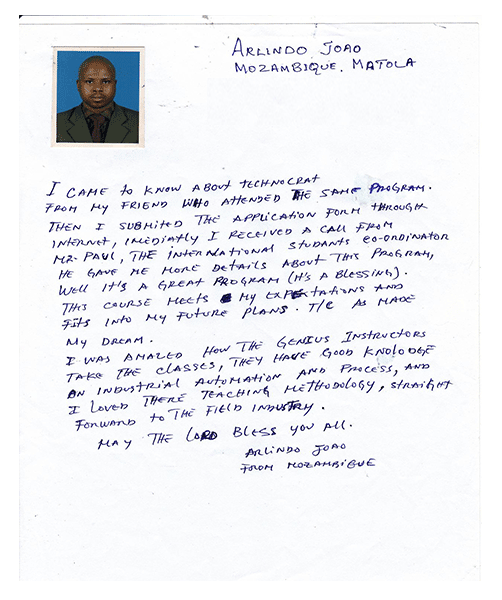 ARLINDO JOAO
MOZAMBIQUE. MATOLA
I CAME to KNOW ABOUT TECHNOCRAT
FROM MY FRIEND WHO ATTENDED THE SAME PROGRAM.
THEN I SUBMITED THE APPLICATION FORM THROUGH
INTERNET, IMEDIATLY I RECEIVED A CALL FROM
MR. PAUL, THE INTERNATIONAL STUDENTS CO-ORDINATOR
HE GAVE ME MORE DETAILS ABOUT THIS PROGRAM,
WELL IT'S A GREAT PROGRAM (IT'S A BLESSING).
THIS COURSE MEETS MY EXPETATIONS AND
FITS INTO MY FUTURE PLANS. T/C AS MADE
MY DREAM.
I WAS AMAZED HOW THE GENIUS INSTRUCTORS
TAKE THE CLASSES, THEY HAVE GOOD KNOLODGE
ON INDUSTRIAL AUTOMATION AND PROCESS, AND
I LOVED THERE TEACHING METHODOLOGY, STRAIGHT
FORWARD TO THE FIELD INDUSTRY.
MAY THE LORD BLESS YOU ALL.
ARLINDO JOAO
FROM MOZAMBIQUE